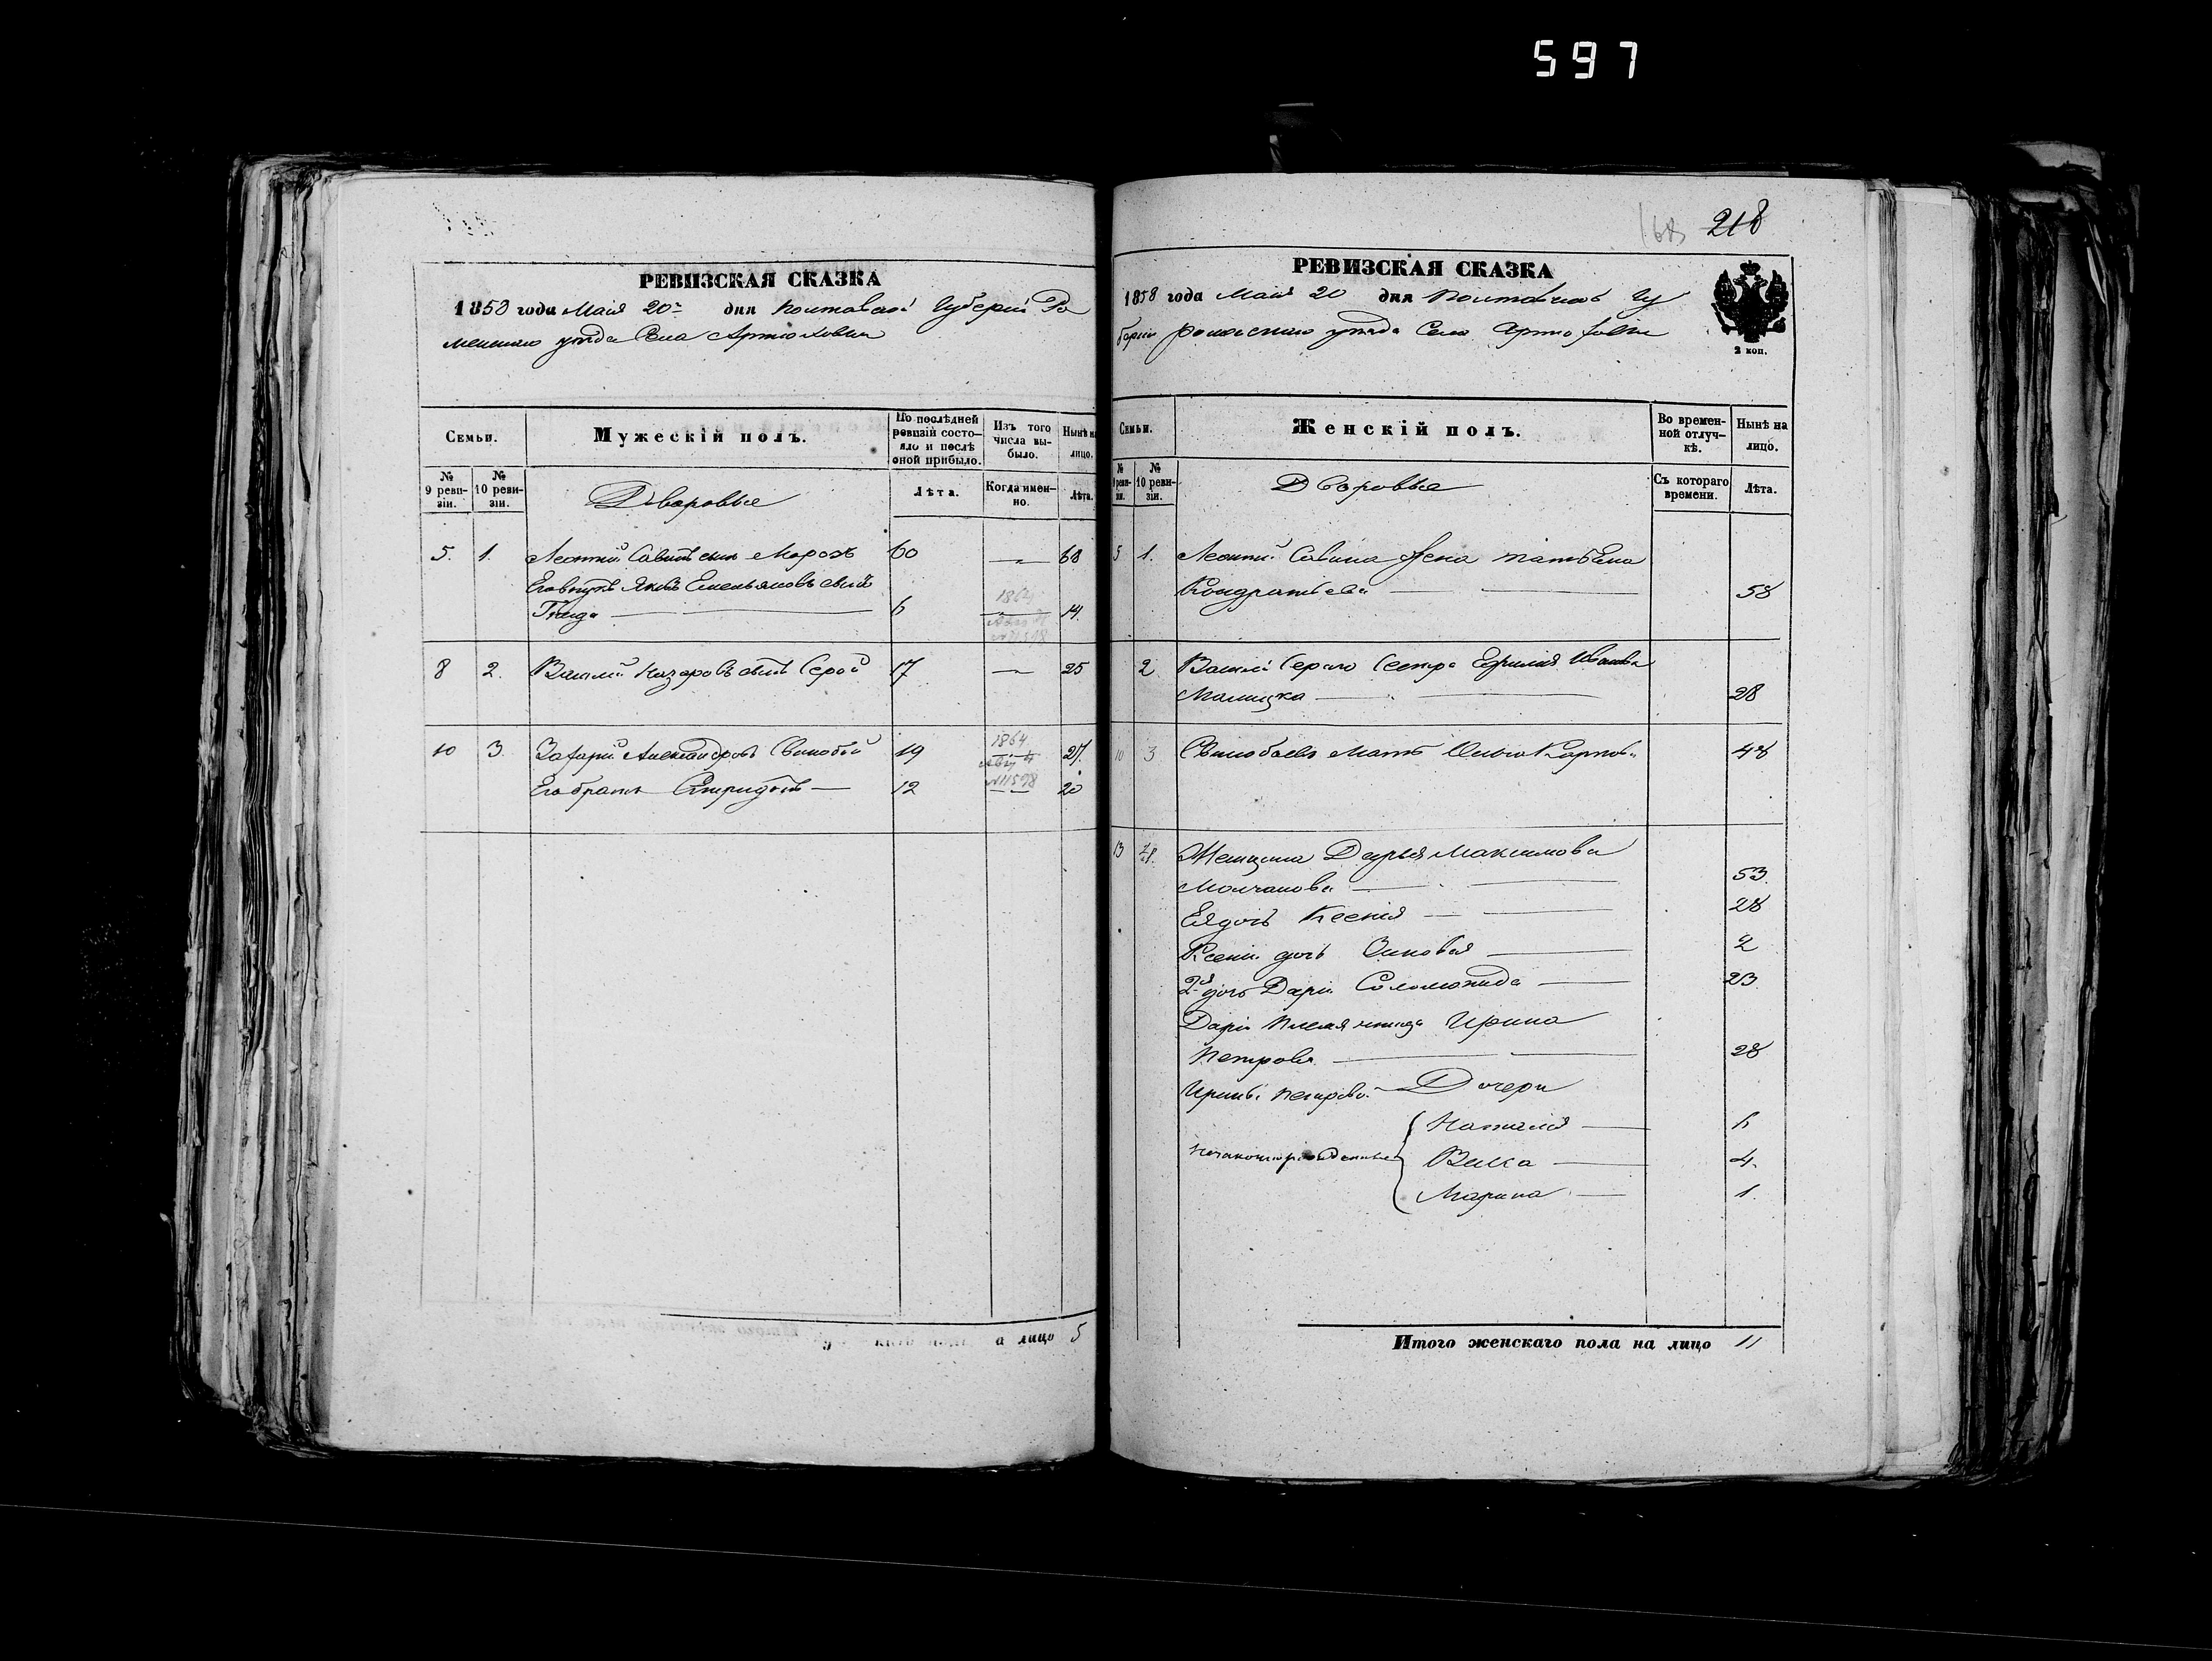 597
РЕВИЗСКАЯ СКАЗКА
1858 года Мая 20 дня Полтавской Губерніи Ро
менскаго уезда Села Артюховки
Семьи.
Мужескій полъ.
По послѣдней ревизіи состо-яло и послѣ оной прибыло.
Изъ того числа вы-было.
Нынѣ на лицо.
№ 9 реви-зіи.
№ 10 реви-зіи.
Дворовые
Лѣта.
Когда имен-но.
Лѣта.
5. 1. Леонтий Савинъ сынъ Морозъ 60 — 68
Его внукъ Яковъ Емельяновъ сынъ 1864
6 14.
8 2. Василий Назаровъ сынъ Серой 17 — 25
10 3. Захарий Александровъ Свинобой 19 1864 27.
№11598
Его братъ Спиридонъ — 12 — 20
а лицо 5
168 218
РЕВИЗСКАЯ СКАЗКА
1858 года Мая 20 дня Полтавской Гу
берніи Роменскаго уезда Села Артюховки
2 коп.
Семьи.
Женскій полъ.
Во времен-ной отлуч-кѣ.
Нынѣ на лицо.
№ 9 реви-зіи.
№ 10 реви-зіи.
Дворовые
Съ котораго времени.
Лѣта.
5 1. Леонтия Савина жена Татьяна
Кондратьева — 58
2 Василия Серого Сестра Ивановна
28
10 3 Свинобоевъ Мать Карпова 48
13 4. Женщина Дарья Максимова
Молчанова — 53.
Ея дочь Ксения — 28
Ксении дочь Зиновья — 2
2я дочь Дарьи Соломонида — 23.
Дарьи племянница Ирина
Петрова — 28
Ирины Петровой Дочери
Наталия — 6
незаконнорожденные Васса — 4.
Марина — 1.
Итого женскаго пола на лицо 11